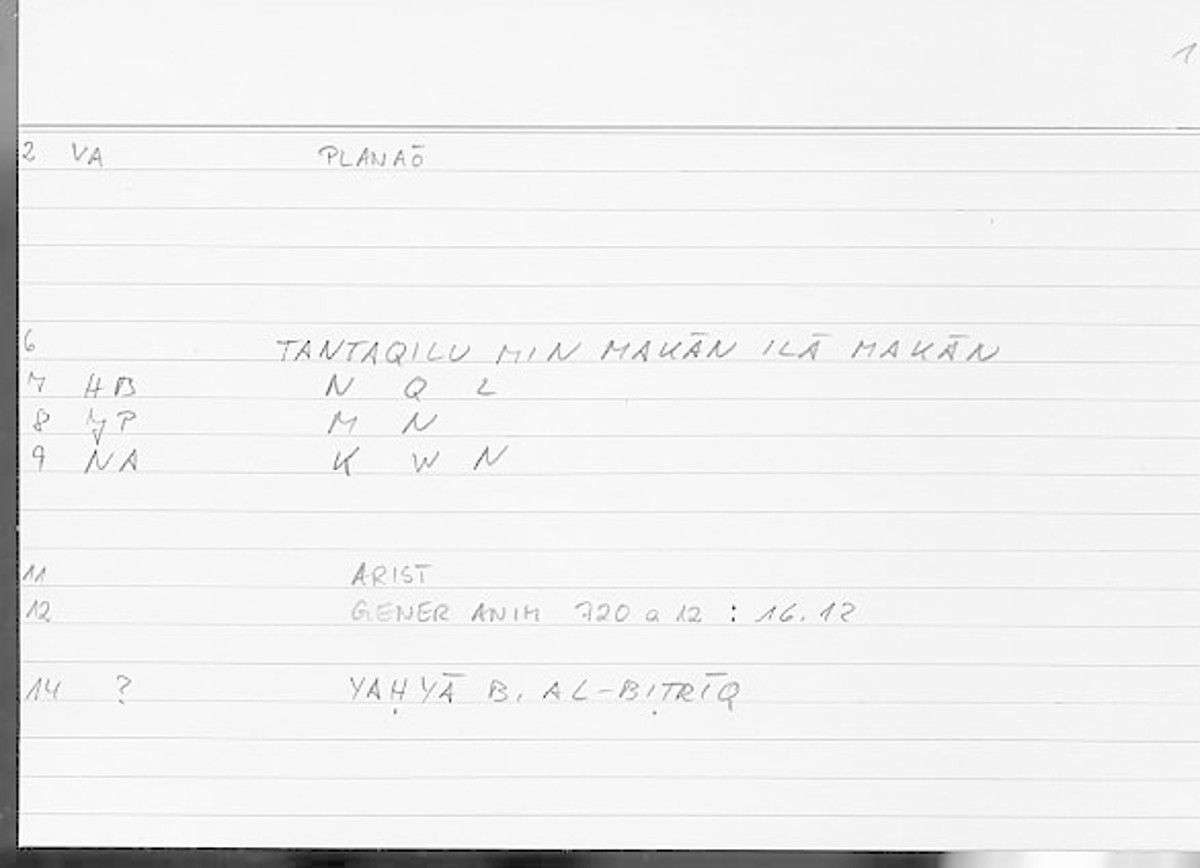 1
2 VA PLANAŌ
6 TANTAQILU MIN MAKĀN ILĀ MAKĀN
7 HB N Q L
8 JP M N
9 NA K W N
11 ARIST
12 GENER ANIM 720 a 12 : 16.12
14 ? YAḤYĀ B. AL-BIṬRĪQ